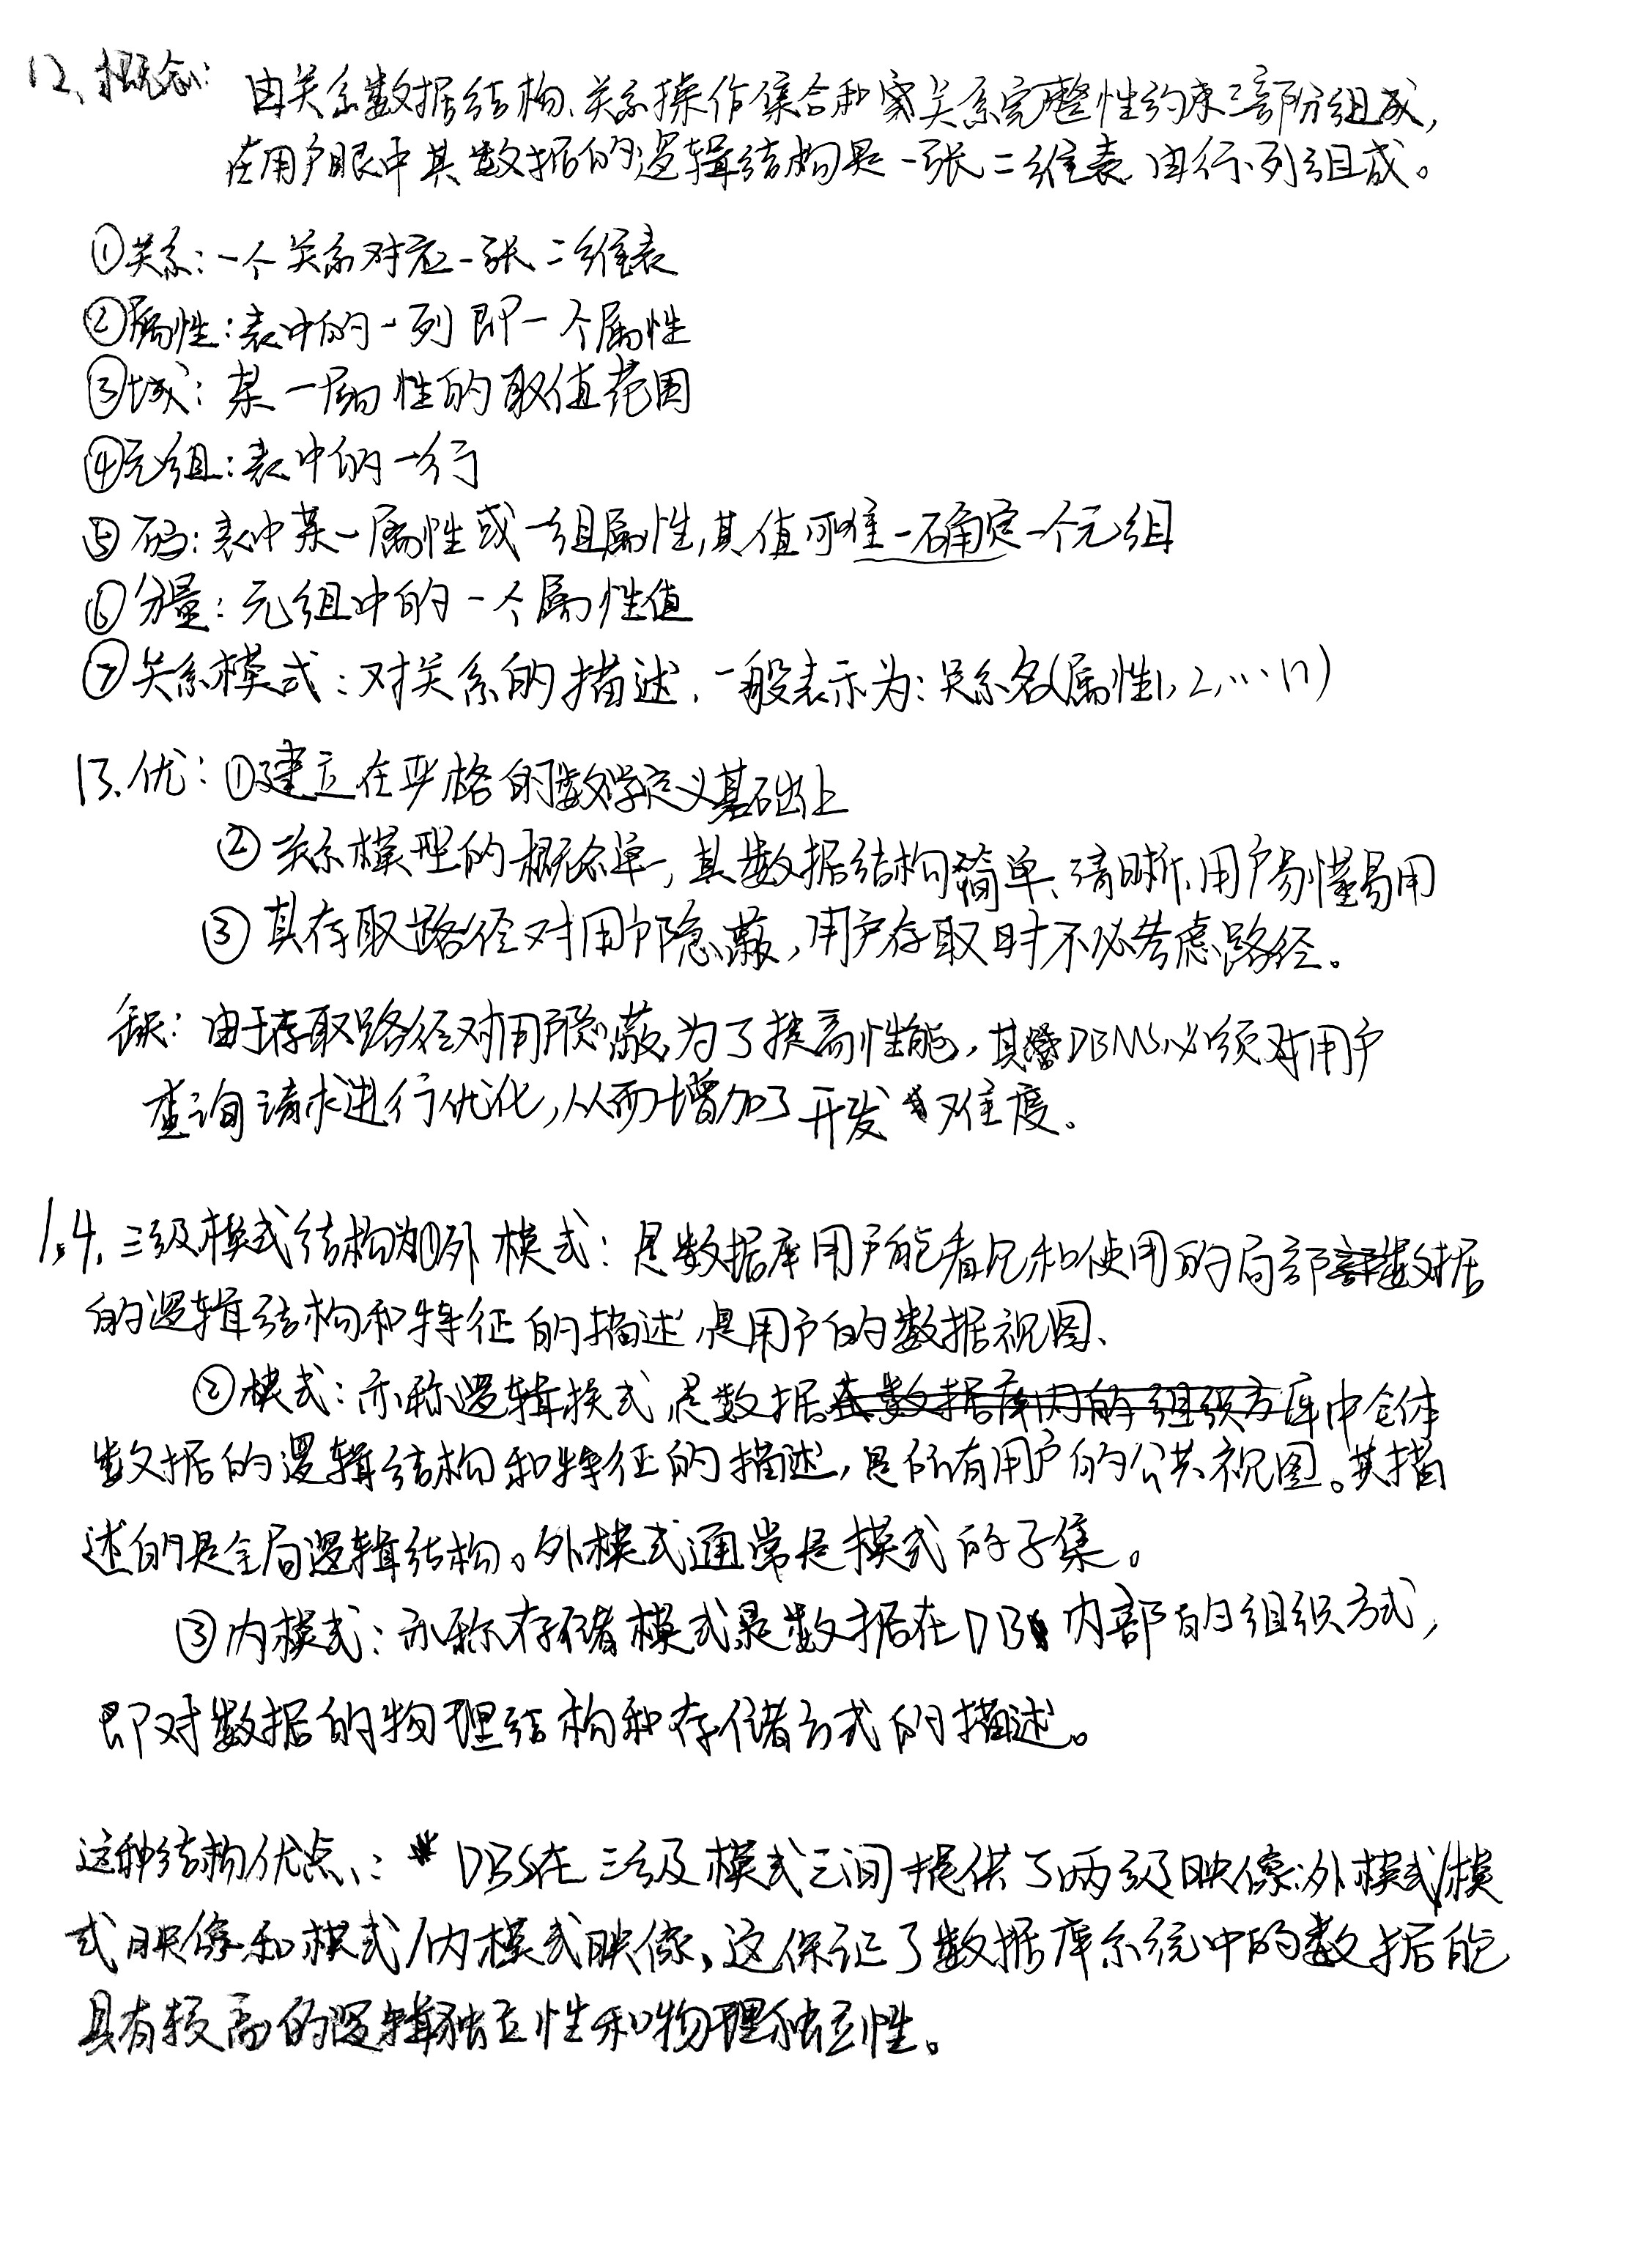 12、概念：由关系数据结构、关系操作集合和关系完整性约束三部分组成，
在用户眼中其数据的逻辑结构是一张二维表，由行、列组成。
①关系：一个关系对应一张二维表
②属性：表中的一列即一个属性
③域：某一属性的取值范围
④元组：表中的一行
⑤码：表中某一属性或一组属性，其值可唯一确定一个元组
⑥分量：元组中的一个属性值
⑦关系模式：对关系的描述，一般表示为：关系名(属性1, 2, … n)
13、优：①建立在严格的数学定义基础上
②关系模型的概念单一，其数据结构简单、清晰、用户易懂易用
③其存取路径对用户隐蔽，用户存取时不必考虑路径。
缺：由于存取路径对用户隐蔽，为了提高性能，其DBMS必须对用户
查询请求进行优化，从而增加了开发难度。
14、三级模式结构为①外模式：是数据库用户能看见和使用的局部数据
的逻辑结构和特征的描述，是用户的数据视图、
②模式：亦称逻辑模式，是数据库中全体
数据的逻辑结构和特征的描述，是所有用户的公共视图。其描
述的是全局逻辑结构。外模式通常是模式的子集。
③内模式：亦称存储模式是数据在DB内部的组织方式，
即对数据的物理结构和存储方式的描述。
这种结构优点：DBS在三级模式之间提供了两级映像：外模式/模
式映像和模式/内模式映像，这保证了数据库系统中的数据能
具有较高的逻辑独立性和物理独立性。